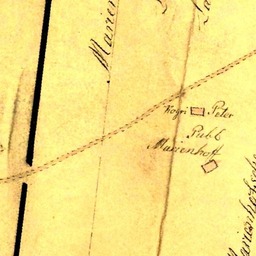 Marien
Kogri Peter
Publ
Marienhoff
Marienhofsche